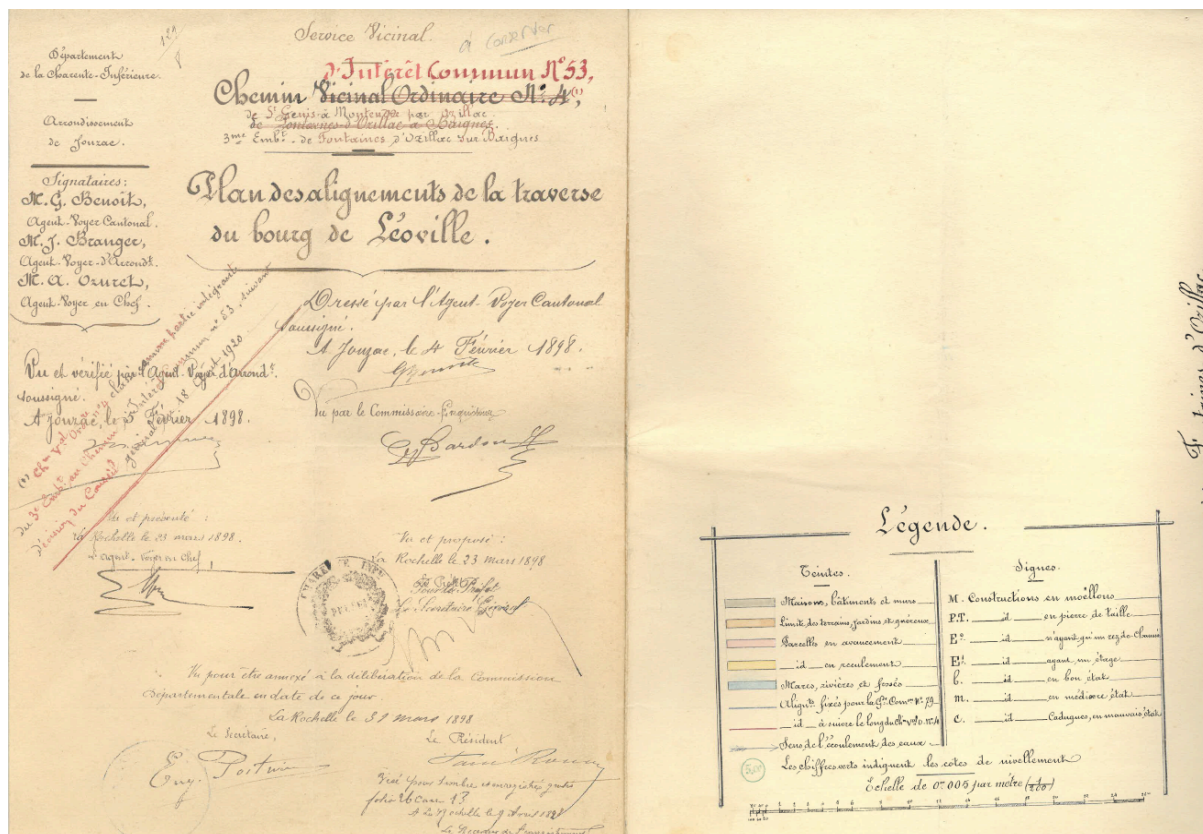 Département
de la Charente-Inférieure.
Arrondissement
de Jonzac.
Signataires:
M. G. Benoit,
Agent-Voyer Cantonal.
M. J. Branger,
Agent-Voyer-d'Arrondt.
M. A. Ozuret,
Agent-Voyer en Chef.
Service Vicinal.
à conserver
d'Intérêt Commun N° 53,
Chemin Vicinal Ordinaire N° 4, (1)
de St Genis à Montendre par Ozillac
de Fontaines d'Ozillac à Baignes.
3me Embt. de Fontaines d'Ozillac sur Baignes
Plan des alignements de la traverse
du bourg de Léoville.
Dressé par l'Agent-Voyer Cantonal
soussigné.
A Jonzac, le 4 Février 1898.
Vu et vérifié par l'Agent-Voyer d'Arrondt.
soussigné.
A Jonzac, le 5 Février 1898.
Vu par le Commissaire-Enquêteur
(1) Chin Val Ordre n° 4 classé comme partie intégrante
du 3e Embt. au Chemin d'Intérêt Commun n° 53 suivant
décision du Conseil général du 18 Août 1920
Vu et présenté :
La Rochelle le 23 mars 1898.
L'Agent-Voyer en Chef,
Vu et proposé :
La Rochelle le 23 mars 1898
Pour le Préfet
Le Secrétaire Général
Vu pour être annexé à la délibération de la Commission
Départementale en date de ce jour
La Rochelle le 31 mars 1898
Le Secrétaire,
Le Président
Eug. Poitevin
Visé pour timbre et enregistré gratis
folio 26 case 13
A La Rochelle le 9 Avril 1898
Légende.
Teintes.
Maisons, bâtiments et murs
Limite des terrains, jardins et guéreux
Parcelles en avancement
id en reculement
Mares, rivières et fossés
Aligts fixés pour la Gde Comm. N° 79
id à suivre le long du Ch. v. O. N° 4
Sens de l'écoulement des eaux
Les chiffres verts indiquent les cotes de nivellement
Echelle de 0m 005 par mètre (1/200)
Signes.
M. Constructions en moëllons
P.T. id en pierre de taille
E°. id n'ayant qu'un rez-de-Chaussée
E1. id ayant un étage
b. id en bon état
m. id en médiocre état
c. id Caduques, en mauvais état
d'Ozillac